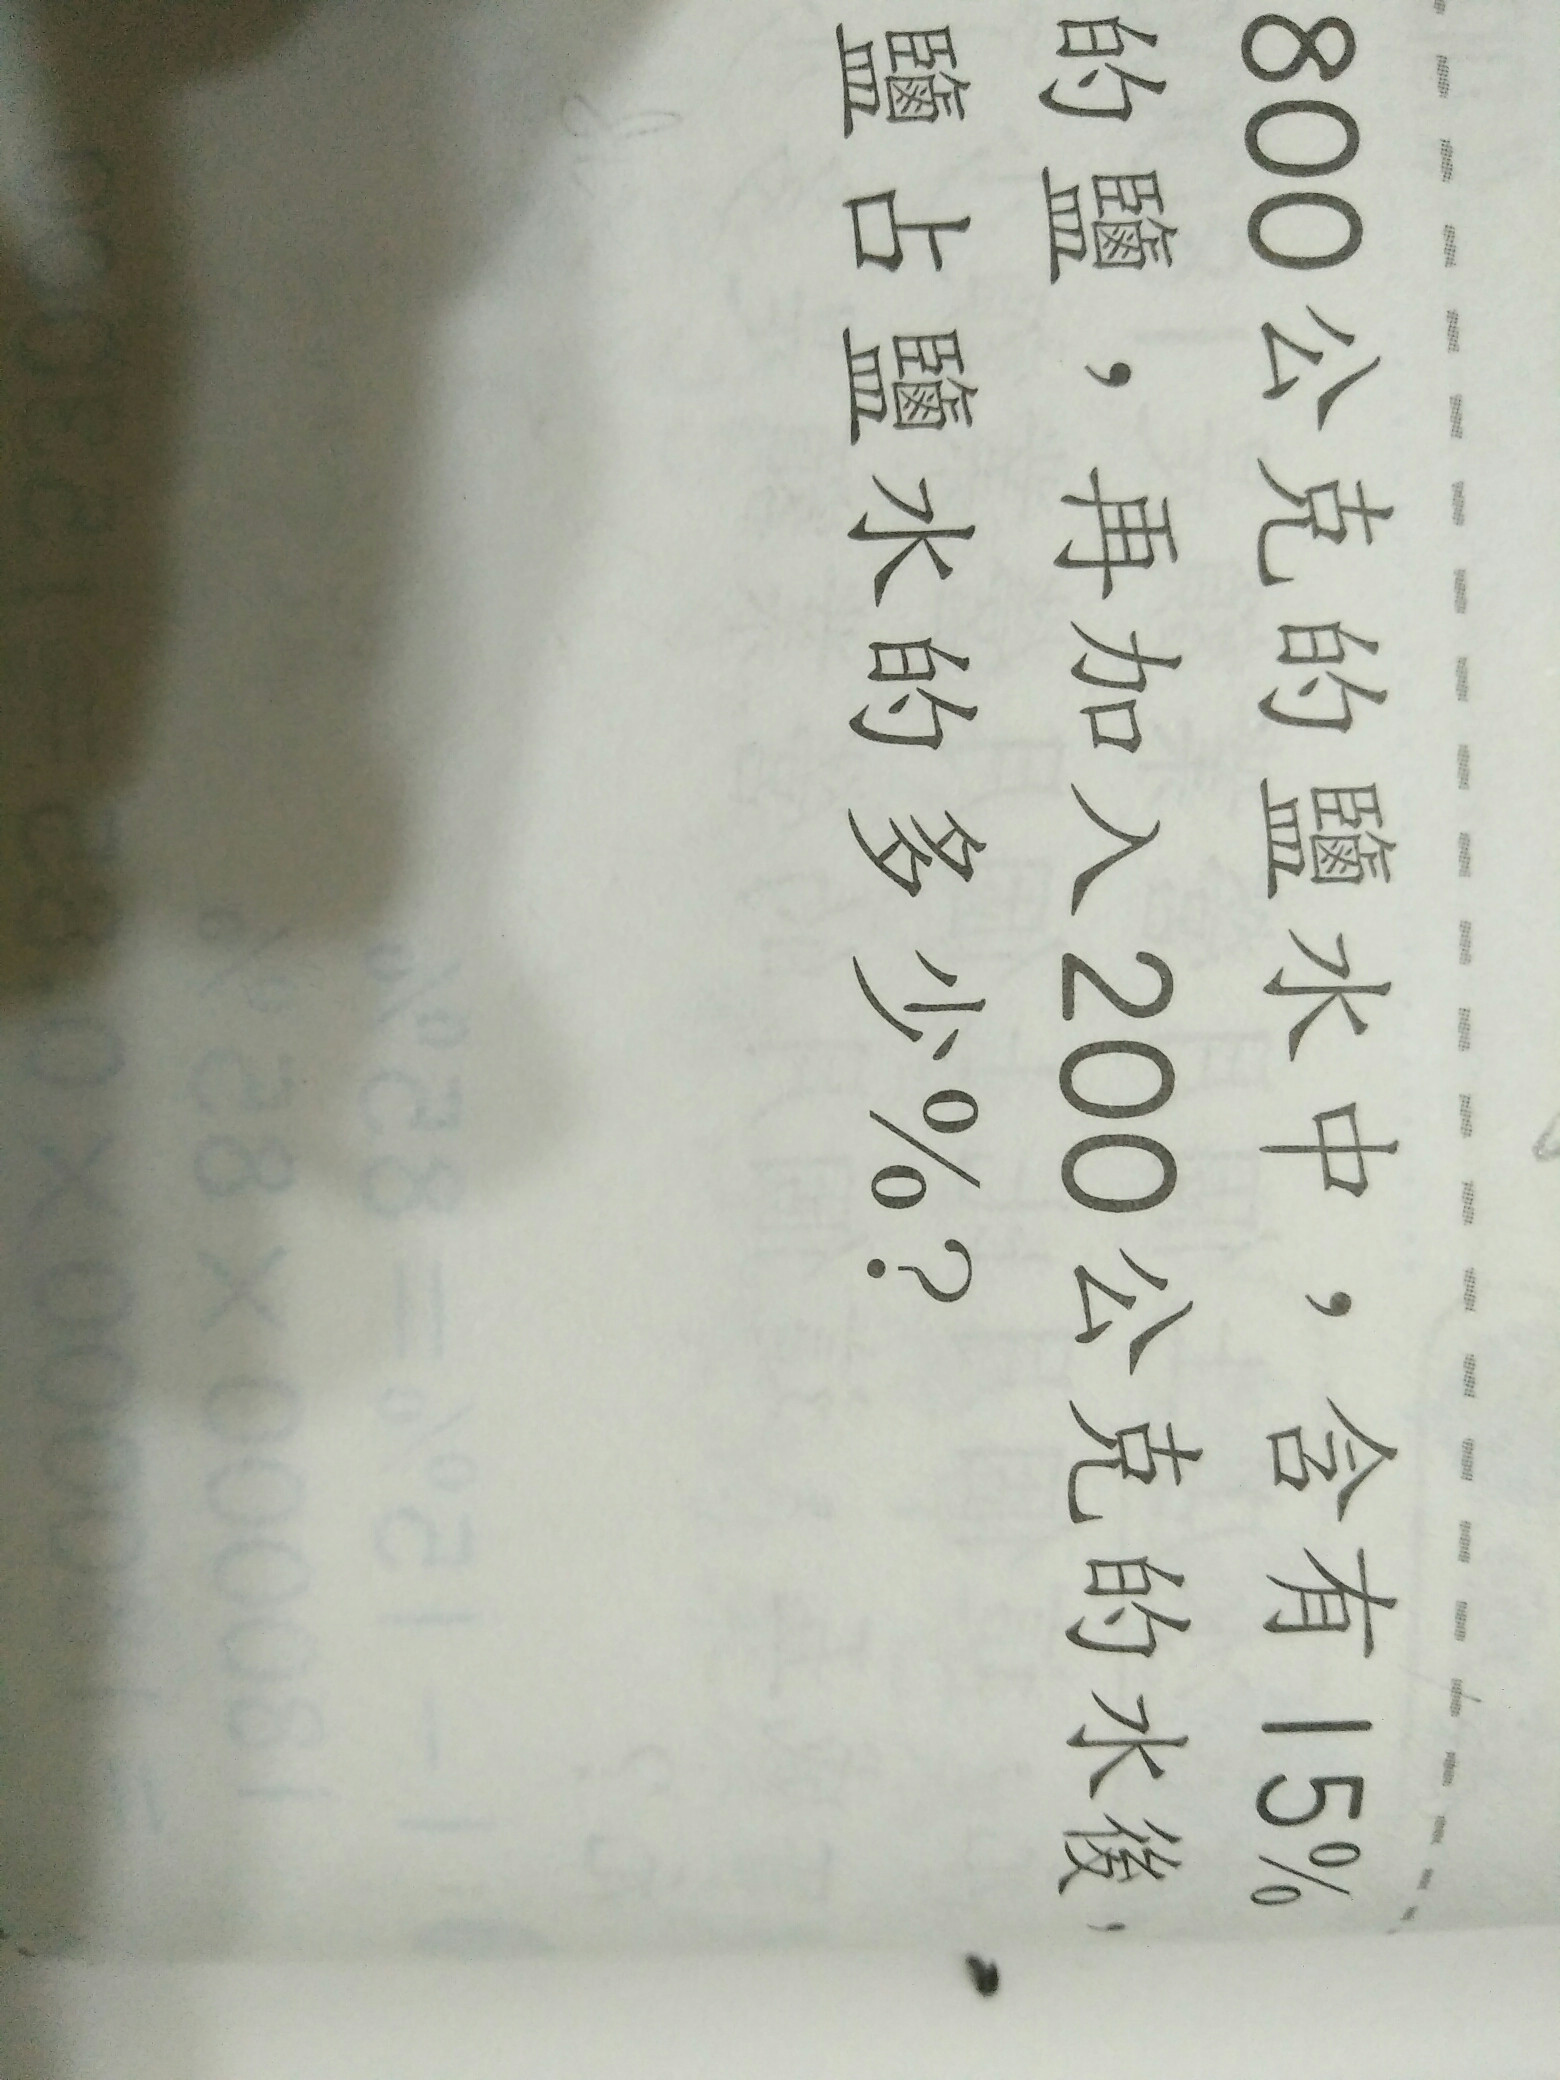 800公克的鹽水中，含有15%
的鹽，再加入200公克的水後，
鹽占鹽水的多少%？